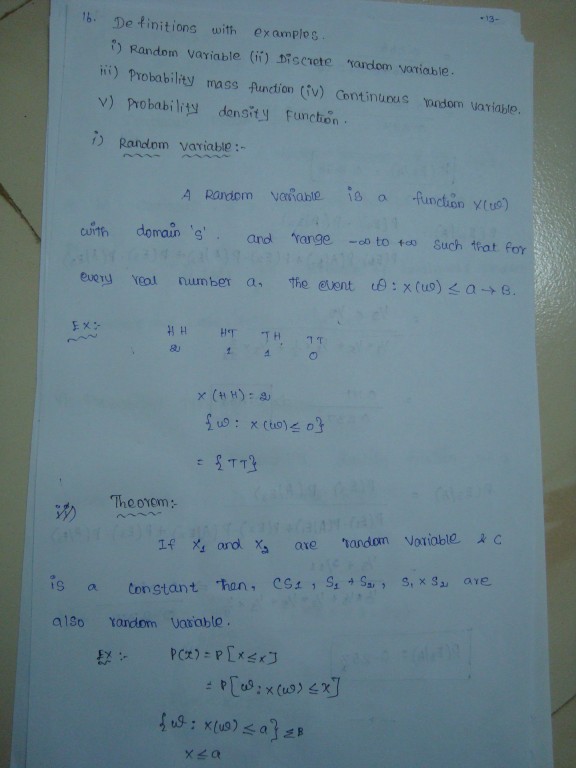 -13-
16. Definitions with examples.
i) Random Variable (ii) Discrete random variable.
iii) Probability mass function (iv) Continuous random variable.
v) Probability density Function.
i) Random variable :-
A Random Variable is a function X(ω)
with domain 's'. and range -∞ to +∞ such that for
every real number a, the event ω : x(ω) ≤ a → B.
Ex:- HH HT TH TT
2 1 1 0
x (HH) = 2
{ω : x(ω) ≤ 0}
= {TT}
Theorem:-
If X1 and X2 are random variable & C
is a constant then, CS1, S1 + S2, S1 x S2 are
also random variable.
Ex :- P(x) = P[X≤x]
= P[ω : x(ω) ≤ x]
{ω : x(ω) ≤ a} ≤ B
x ≤ a